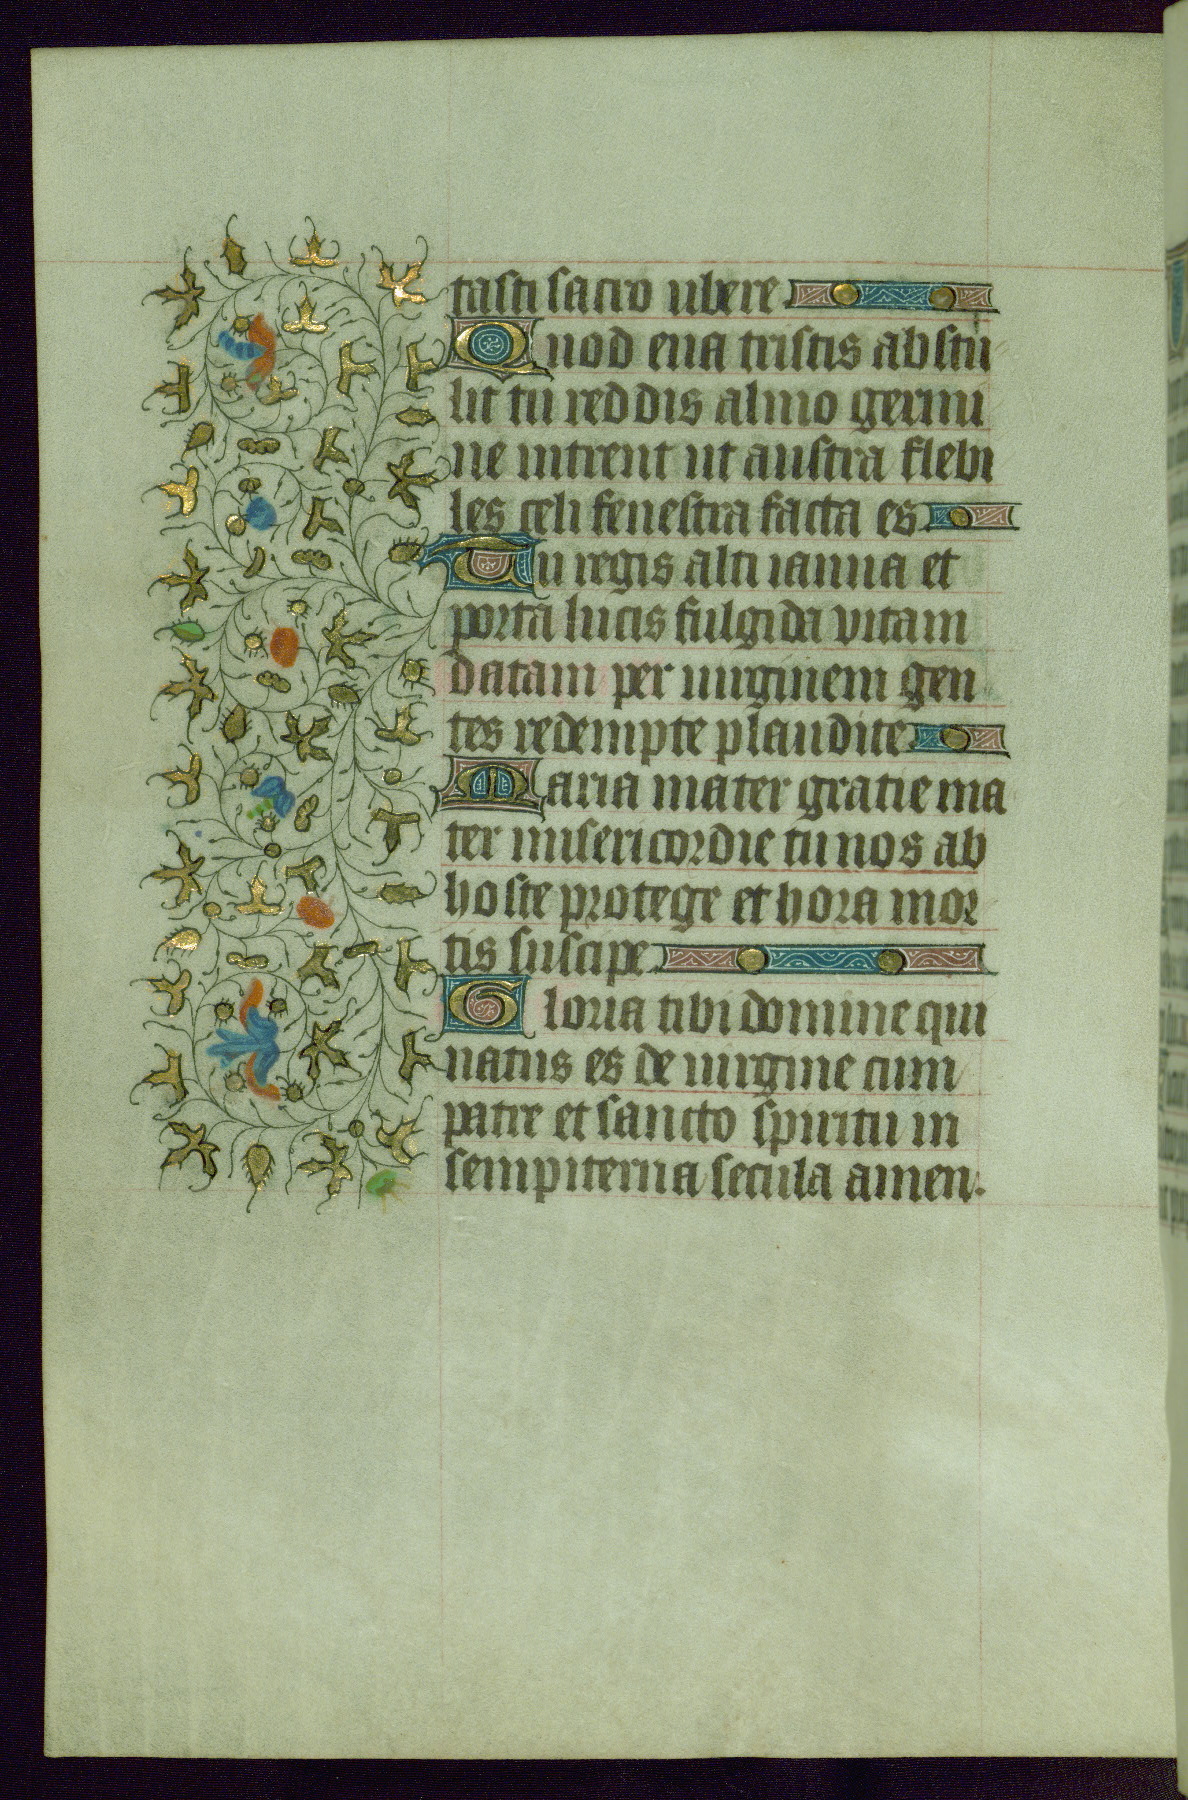 tasti sacro ubere
Quod eua tristis abstu
lit tu reddis almo germi
ne intrent ut austra flebi
les celi fenestra facta es
Tu regis alti ianua et
porta lucis fulgida vitam
datam per uirginem gen
tes redempte plaudite
Maria mater gratie ma
ter misericordie tu nos ab
hoste protege et hora mor
tis suscipe
Gloria tibi domine qui
natus es de uirgine cum
patre et sancto spiritu in
sempiterna secula amen.